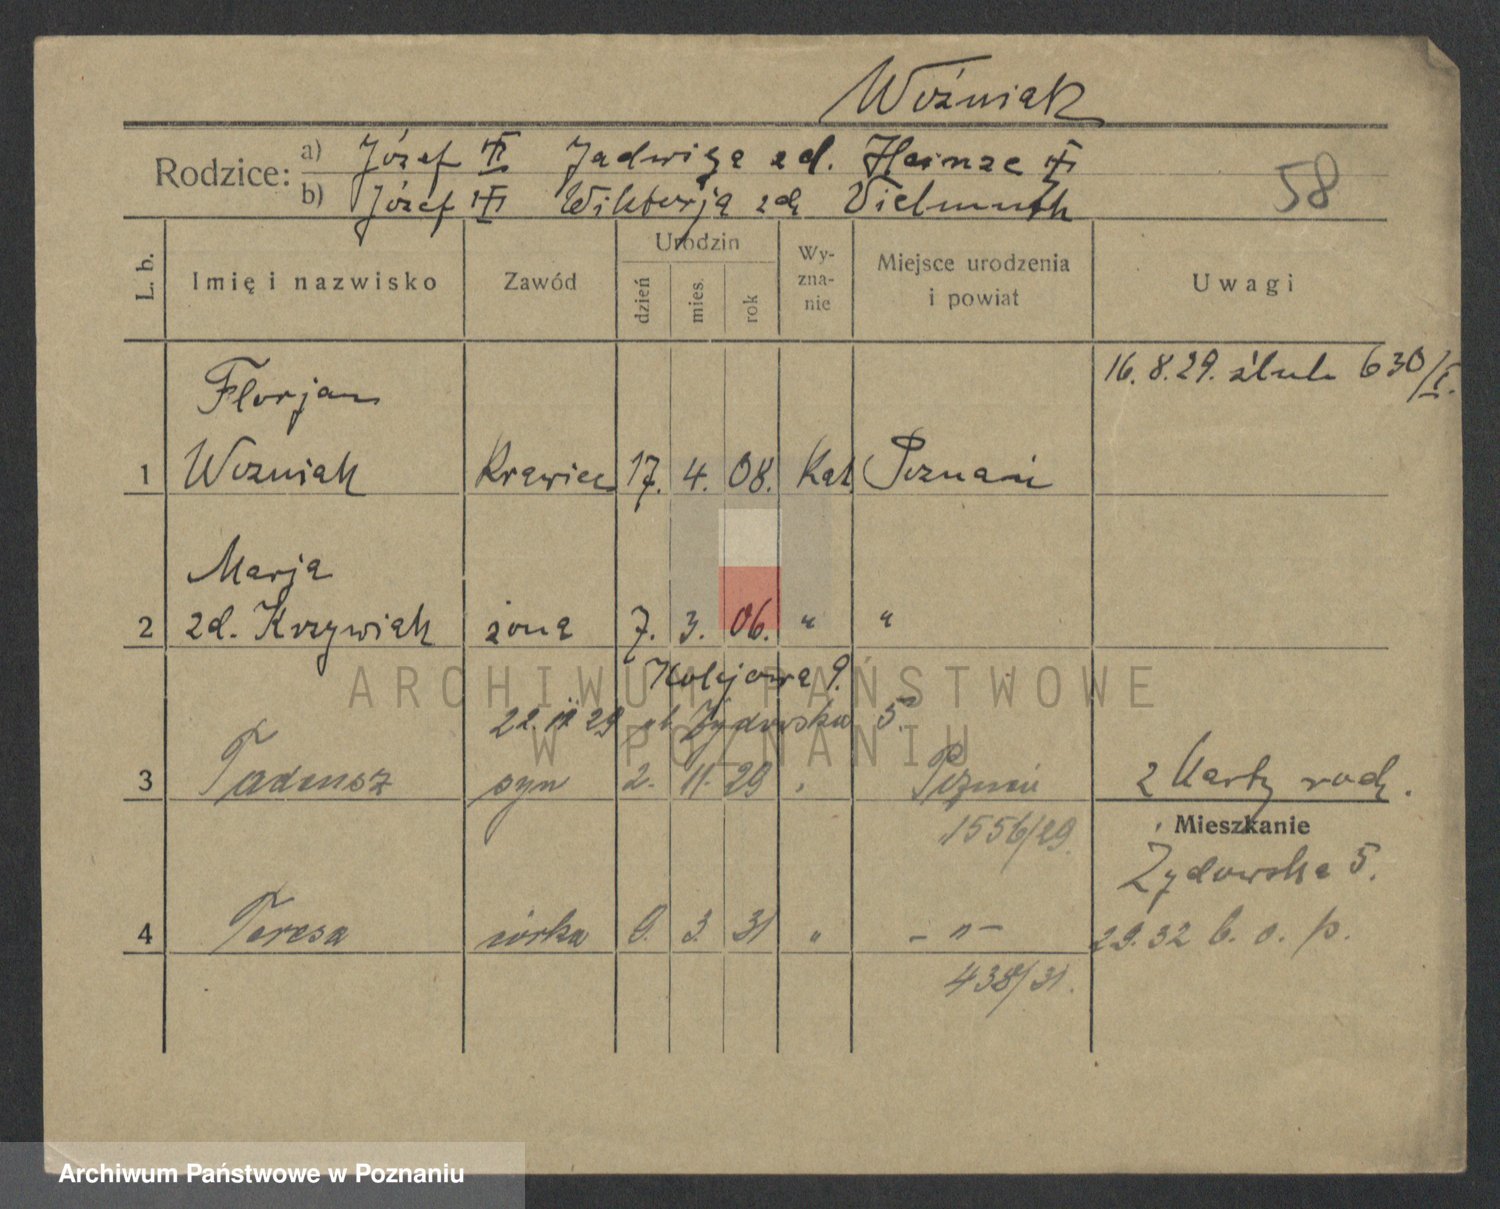 Woźniak
Rodzice: a) Józef Jadwiga zd. Heinze
b) Józef Wiktorja zd. Vielmuth
L. b. Imię i nazwisko Zawód Urodzin dzień mies. rok Wy-zna-nie Miejsce urodzenia i powiat Uwagi
58
16. 8. 29. ślub 630/I.
Florjan
1 Wozniak Krawiec 17. 4. 08. Kat Poznań
Marja
2 zd. Krzywiak żona 7. 3. 06. " "
Kolejowa 9.
22. 29 ul. Żydowska 5.
3 Tadeusz syn 2. 11. 29 Poznań
2 Karty rodz.
1556/29.
Mieszkanie
Żydowska 5.
4 Teresa córka 9. 3. 31 " - " -
29. 32 b. o. p.
438/31.
ARCHIWUM PAŃSTWOWE
W POZNANIU
Archiwum Państwowe w Poznaniu